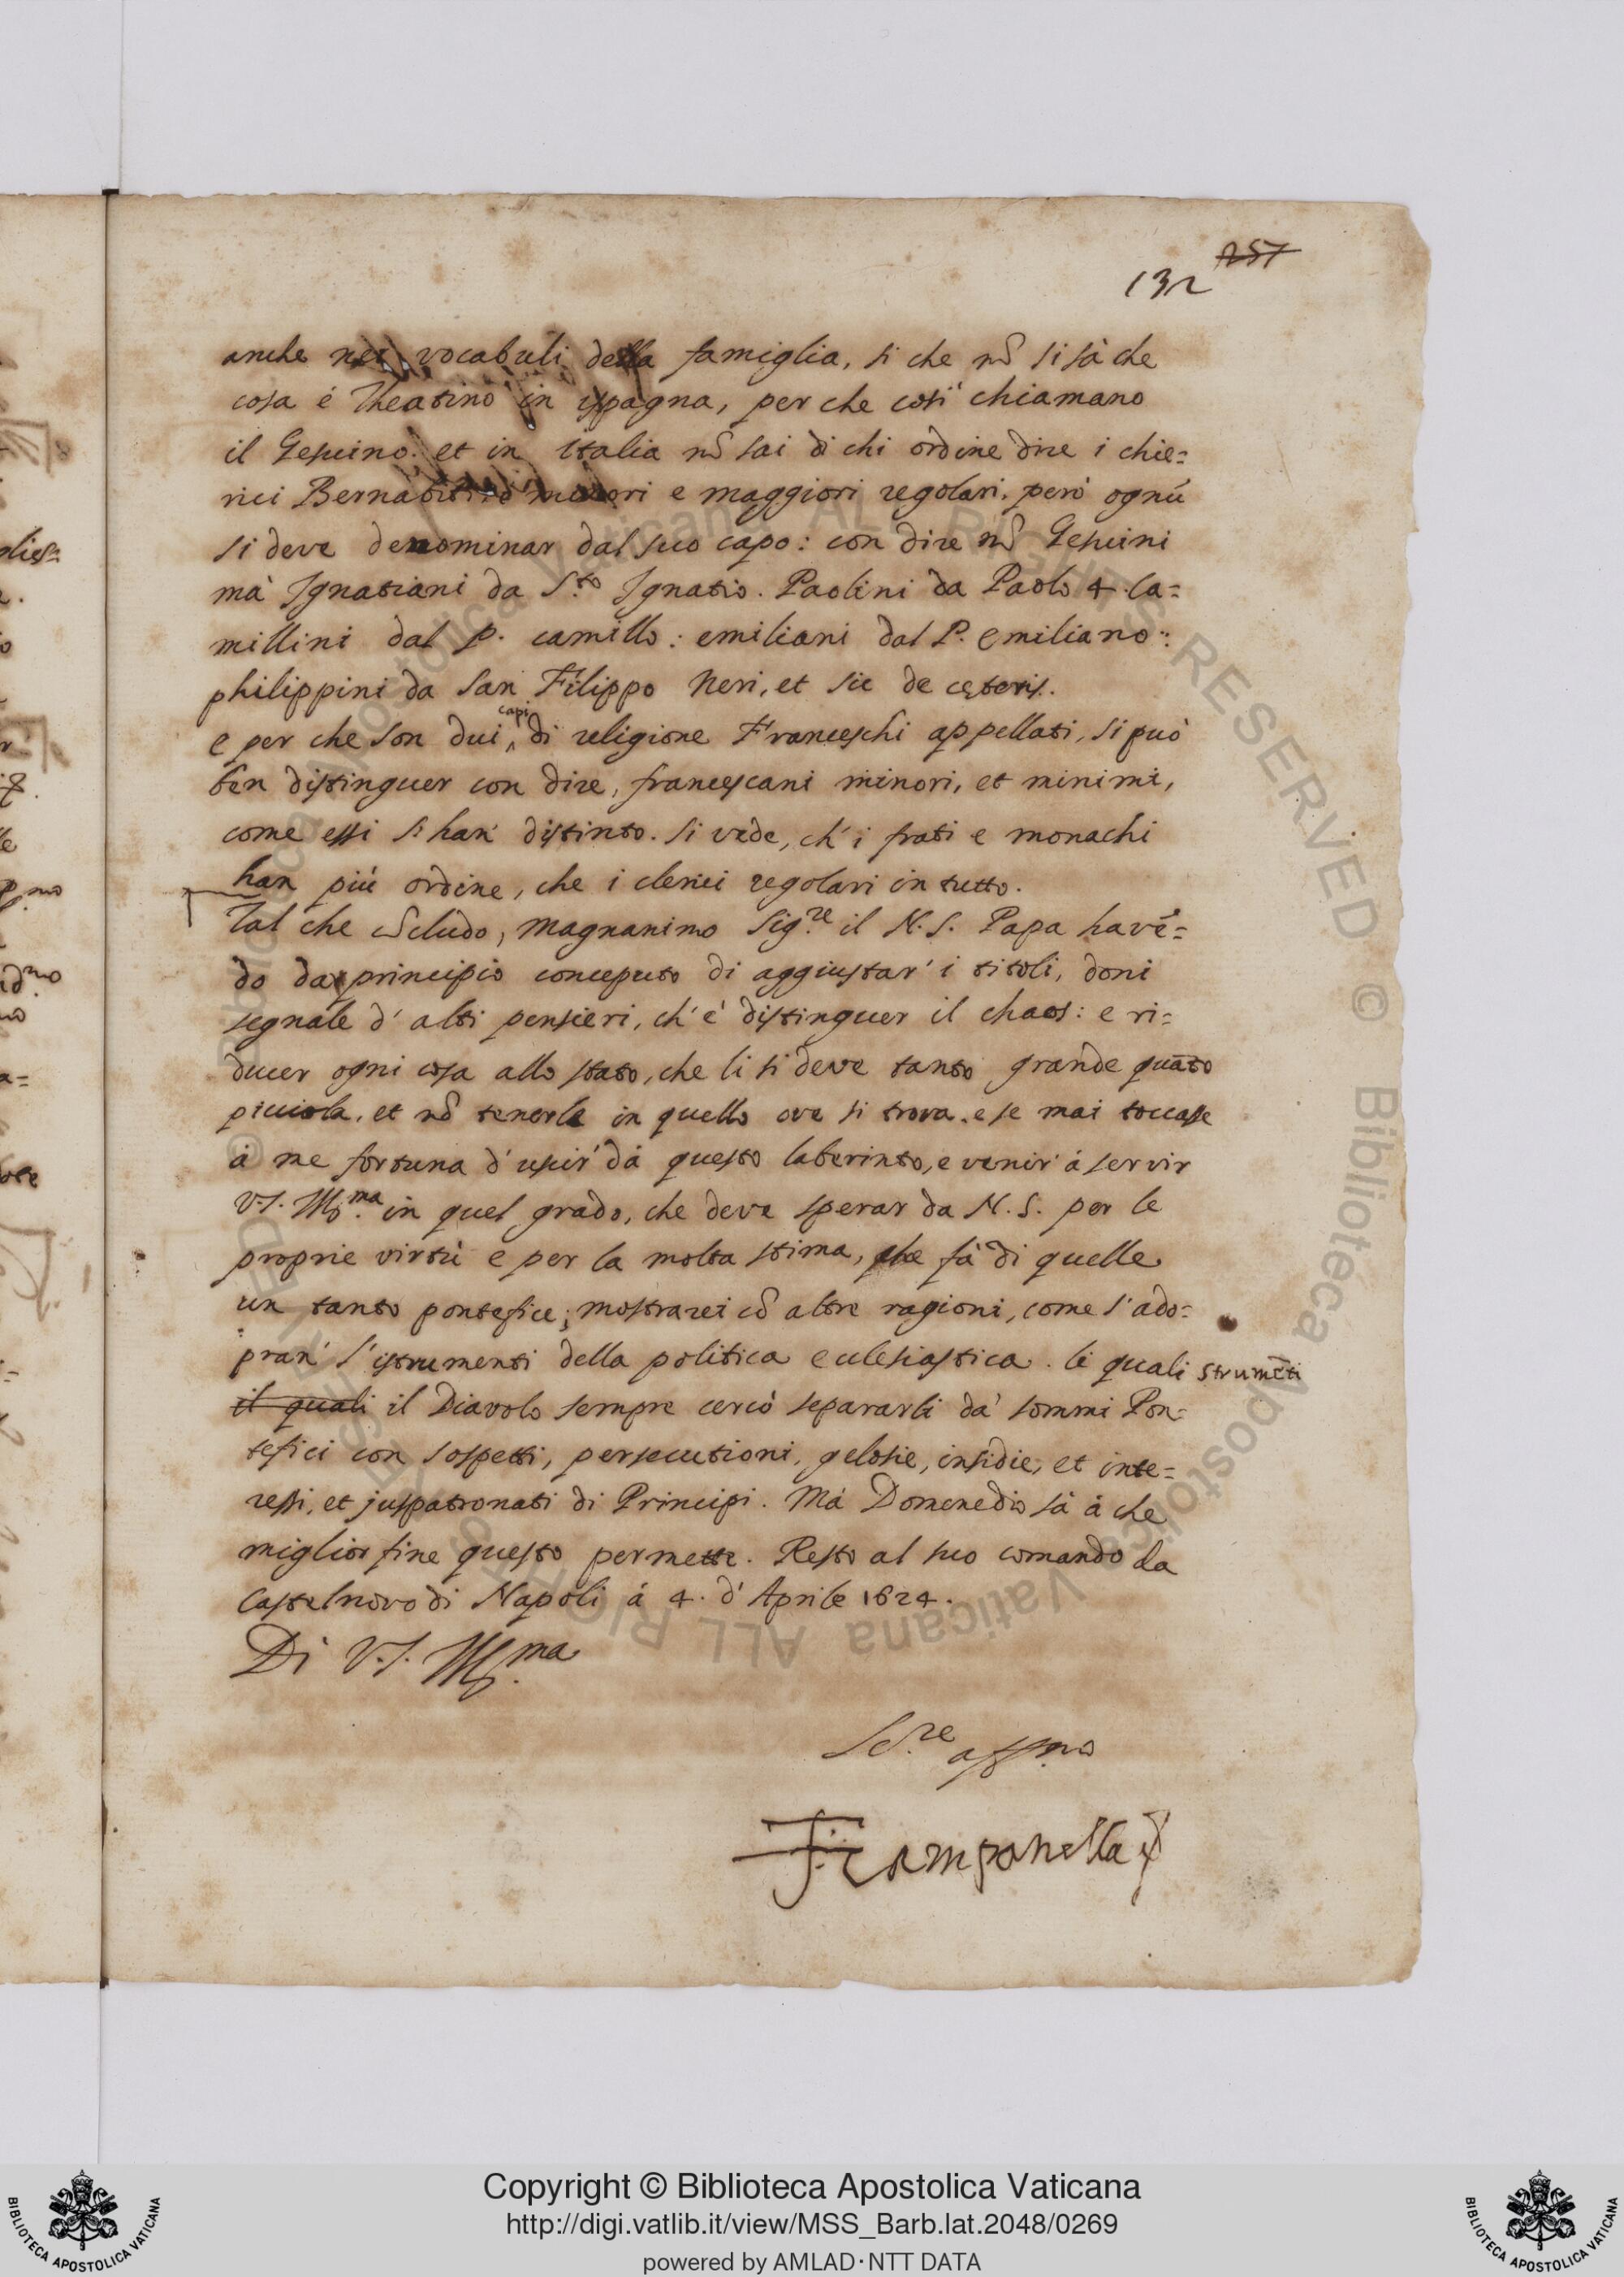 257
132
anche nei vocabuli della famiglia, si che nõ si sà che
cosa é Theatino in ispagna, per che cosi chiamano
il Gesuino. et in italia nõ sai di chi ordine dire i chie=
rici Bernabiti, ò minori e maggiori regolari. però ognũ
si deve denominar dal suo capo: con dire nõ Gesuini
mà Ignatiani da S.to Ignatio. Paolini da Paolo 4. Ca=
millini dal p. camillo: emiliani dal P. emiliano:
philippini da San Filippo Neri, et sic de cęteris.
e per che son dui capi di religione Franceschi appellati, si può
ben distinguer con dire, francescani minori, et minimi,
come essi s'han' distinto. si vede, ch' i frati e monachi
han più ordine, che i clerici regolari in tutto.
Tal che cõcludo, magnanimo Sig.re il N.S. Papa havẽ=
do da principio conceputo di aggiustar' i titoli, doni
segnale d' alti pensieri, ch' é distinguer il chaos: e ri=
ducer ogni cosa allo stato, che li si deve tanto grande quãto
picciola, et nõ tenerla in quello ove si trova. e se mai toccasse
à me fortuna d' uscir' dà questo laberinto, e venir' á servir
V.S. Ill.ma in quel grado, che deve sperar da N.S. per le
proprie virtù e per la molta stima, che fà di quelle
un tanto pontefice; mostrarei cõ altre ragioni, come s' ado=
pran' l' istrumenti della politica ecclesiastica. li quali strumẽti
il quali il Diavolo sempre cercò separarli dà sommi Pon=
tefici con sospetti, persecutioni, gelosie, insidie, et inte=
ressi, et juspatronati di Principi. Má Domenedio sà á che
miglior fine questo permette. Resto al suo comando da
Castelnovo di Napoli á 4. d' Aprile 1624.
Di V.S. Ill.ma
Se.re aff.mo
F. T. Campanella
Copyright © Biblioteca Apostolica Vaticana
http://digi.vatlib.it/view/MSS_Barb.lat.2048/0269
powered by AMLAD·NTT DATA
BIBLIOTECA APOSTOLICA VATICANA
BIBLIOTECA APOSTOLICA VATICANA
© Biblioteca Apostolica Vaticana ALL RIGHTS RESERVED © Biblioteca Apostolica Vaticana ALL RIGHTS RESERVED